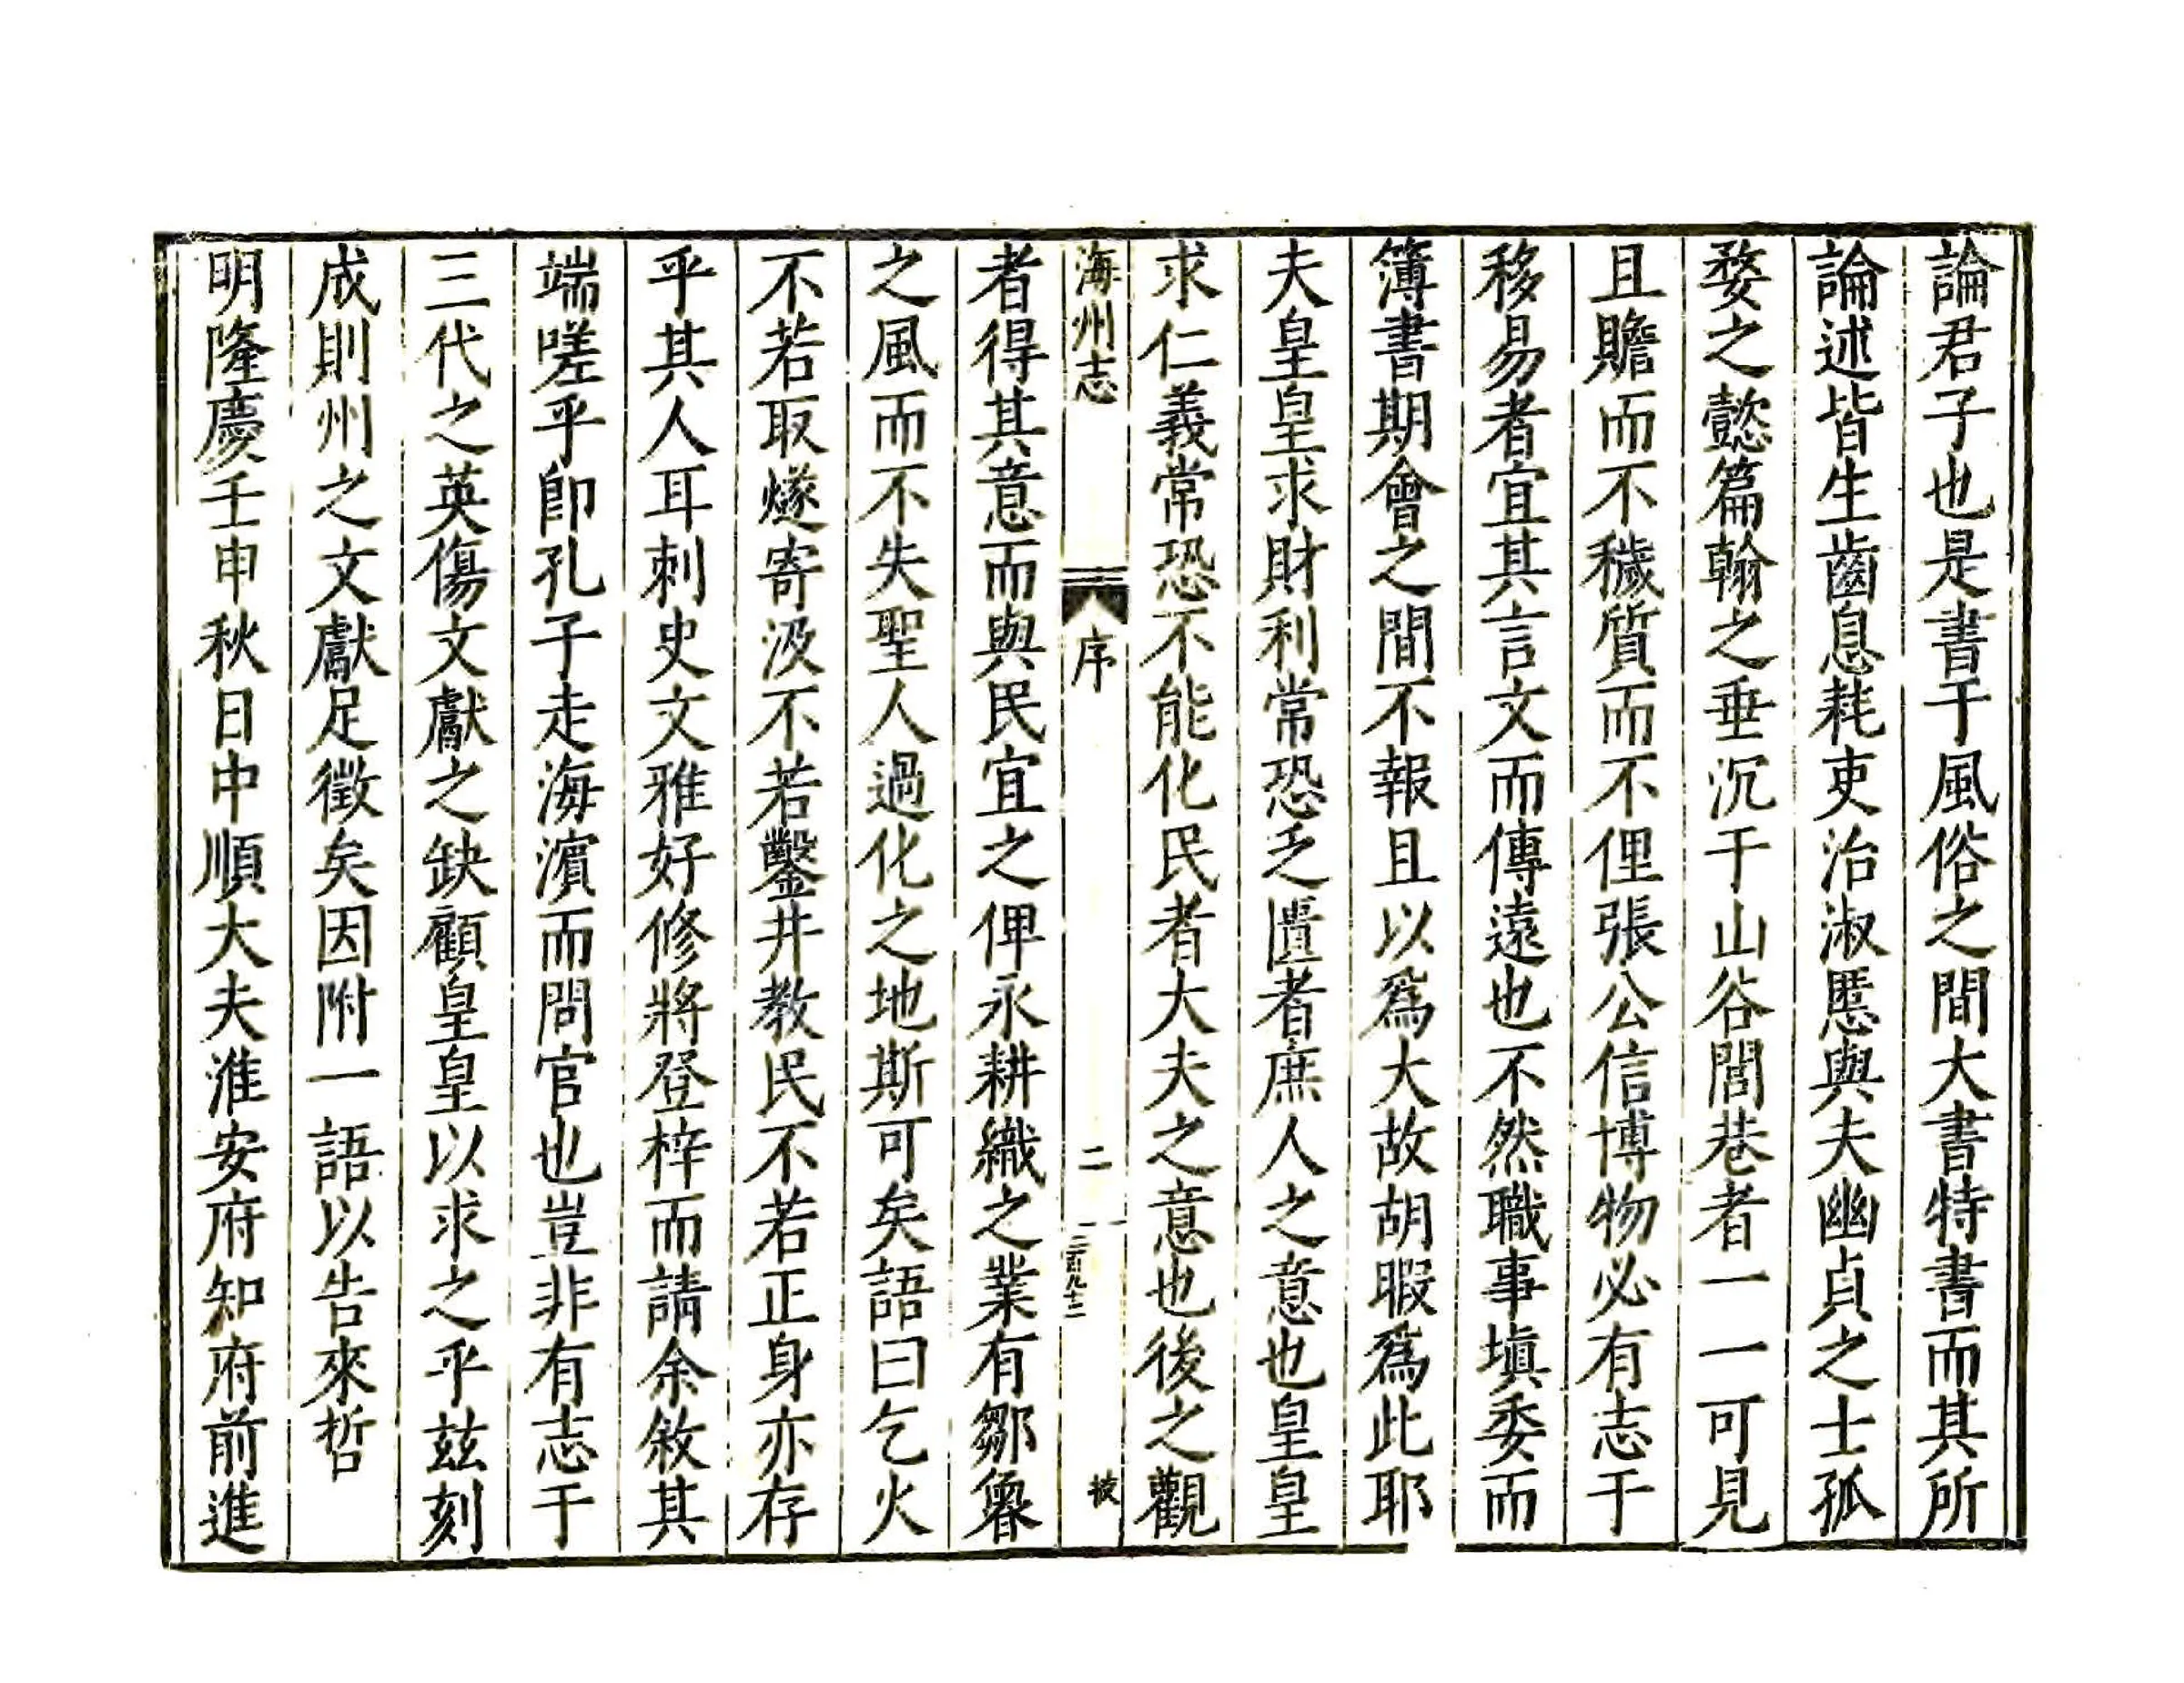 論君子也是書于風俗之間大書特書而其所
論述皆生齒息耗吏治淑慝與夫幽貞之士孤
婺之懿篇翰之垂沉于山谷閭巷者一一可見
且贍而不穢質而不俚張公信博物必有志于
移易者宜其言文而傳遠也不然職事填委而
簿書期會之間不報且以爲大故胡暇爲此耶
夫皇皇求財利常恐乏匱者庶人之意也皇皇
求仁義常恐不能化民者大夫之意也後之觀
海州志 序 二 二百九十二
者得其意而與民宜之俾永耕織之業有鄒魯
之風而不失聖人過化之地斯可矣語曰乞火
不若取燧寄汲不若鑿井教民不若正身亦存
乎其人耳刺史文雅好修將登梓而請余敘其
端嗟乎卽孔子走海濵而問官也豈非有志于
三代之英傷文獻之缺顧皇皇以求之乎茲刻
成則州之文獻足徵矣因附一語以告來哲
明隆慶壬申秋日中順大夫淮安府知府前進